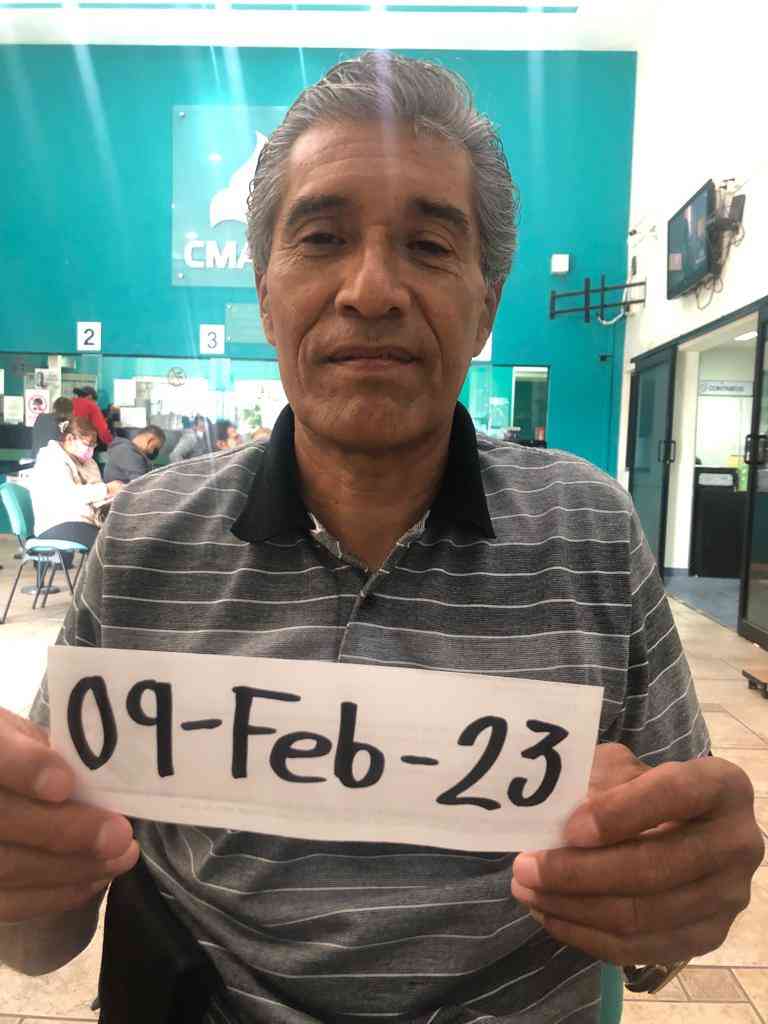 CMA
2
3
CONTRATOS
09-Feb-23